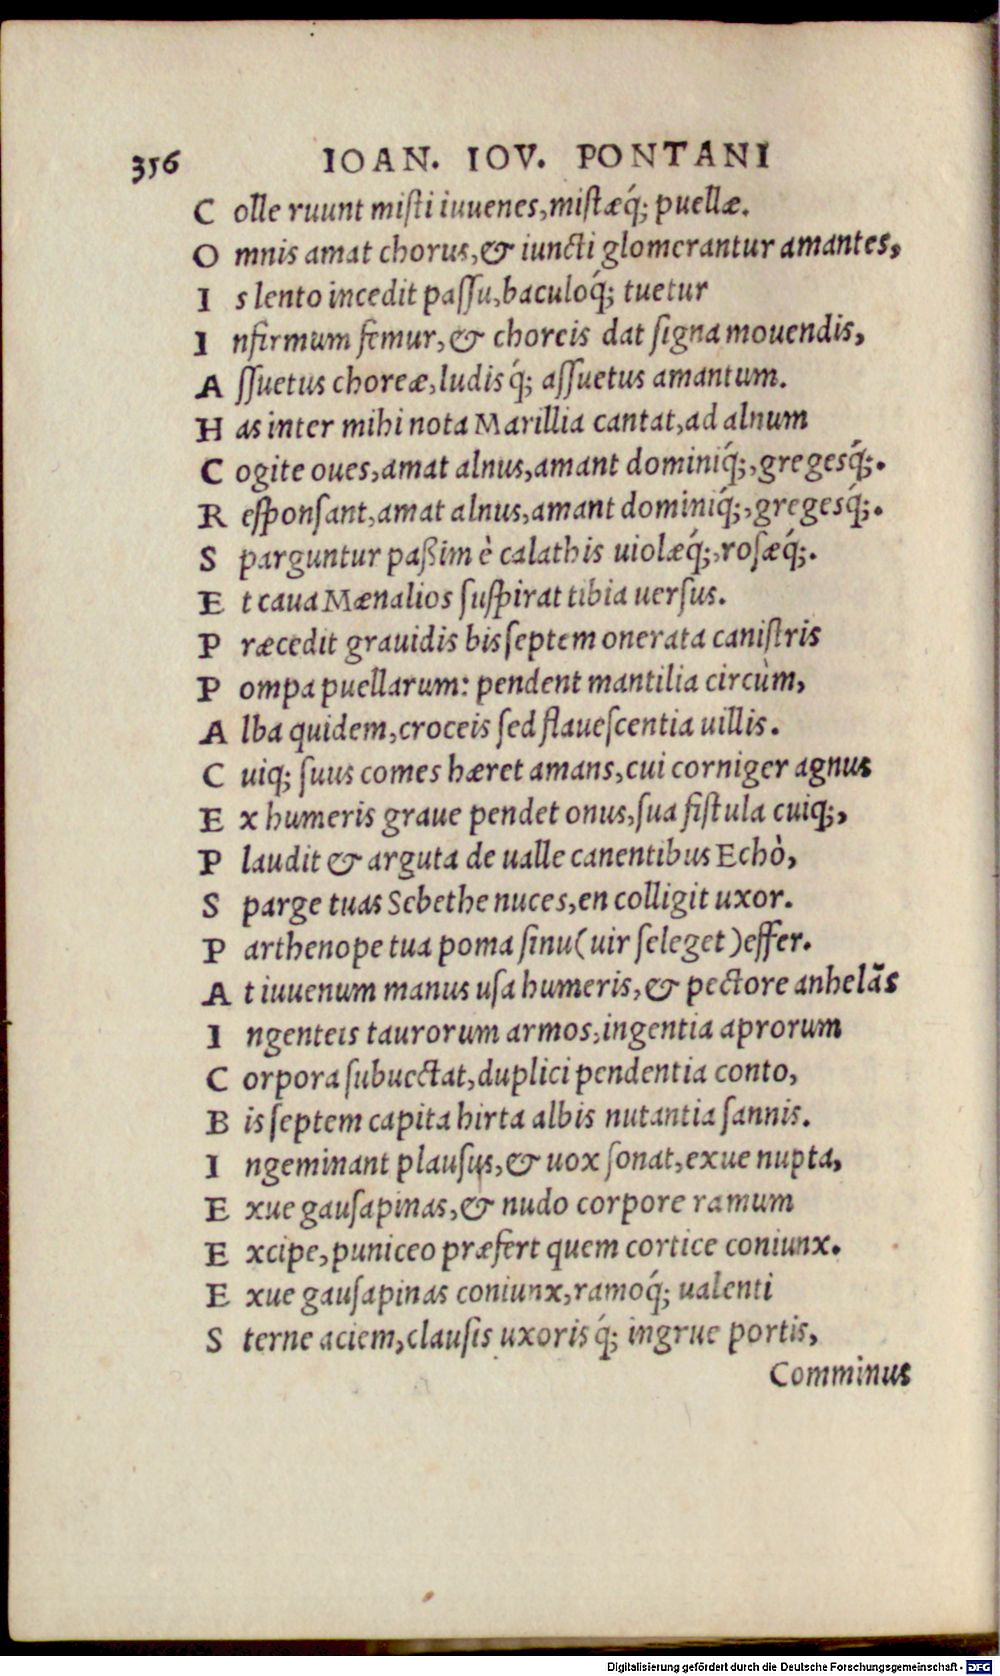 356 IOAN. IOV. PONTANI
C olle ruunt miſti iuuenes, miſtæq́; puellæ.
O mnis amat chorus, & iuncti glomerantur amantes,
I s lento incedit paſſu, baculoq́; tuetur
I nfirmum femur, & choreis dat ſigna mouendis,
A ſſuetus choreæ, ludisq́; aſſuetus amantum.
H as inter mihi nota Marillia cantat, ad alnum
C ogite oues, amat alnus, amant dominiq́;, gregesq́;.
R eſponſant, amat alnus, amant dominiq́;, gregesq́;.
S parguntur paßim è calathis uiolæq́;, roſæq́;.
E t caua Mænalios ſuſpirat tibia uerſus.
P ræcedit grauidis bis ſeptem onerata caniſtris
P ompa puellarum: pendent mantilia circùm,
A lba quidem, croceis ſed flaueſcentia uillis.
C uiq; ſuus comes hæret amans, cui corniger agnus
E x humeris graue pendet onus, ſua fiſtula cuiq;,
P laudit & arguta de ualle canentibus Echò,
S parge tuas Sebethe nuces, en colligit uxor.
P arthenope tua poma ſinu (uir ſeleget) effer.
A t iuuenum manus uſa humeris, & pectore anhelãs
I ngenteis taurorum armos, ingentia aprorum
C orpora ſubuectat, duplici pendentia conto,
B is ſeptem capita hirta albis nutantia ſannis.
I ngeminant plauſus, & uox ſonat, exue nupta,
E xue gauſapinas, & nudo corpore ramum
E xcipe, puniceo præfert quem cortice coniunx.
E xue gauſapinas coniunx, ramoq́; ualenti
S terne aciem, clauſis uxorisq́; ingrue portis,
Comminus
Digitalisierung gefördert durch die Deutsche Forschungsgemeinschaft - DFG